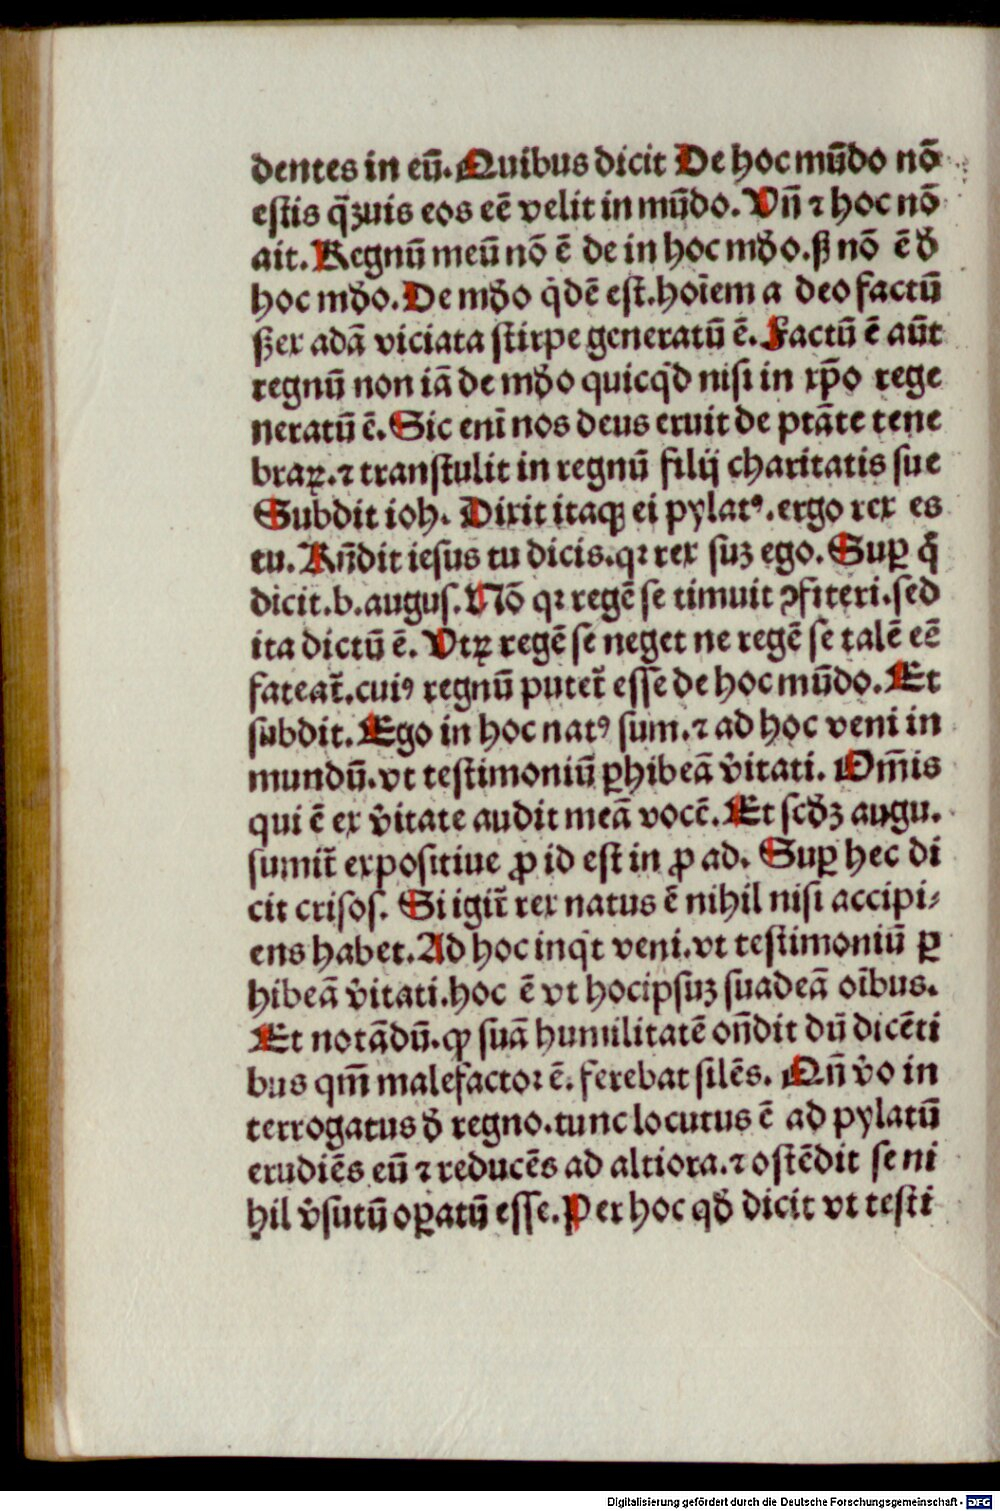 dentes in eū. Quibus dicit De hoc mūdo nō
estis q̄ꝫuis eos eē velit in mūdo. Vn̄ ⁊ hoc nō
ait. Regnū meū nō ē de in hoc mḋo. ß nō ē ḋ
hoc mḋo. De mḋo q̇dē est. hoīem a deo factū
ßex adā viciata stirpe generatū ē. Factū ē aūt
regnū non iā de mḋo quicq̇d nisi in xp̄o rege
neratū ē. Sic eni̅ nos deus eruit de ptāte tene
braꝝ. ⁊ transtulit in regnū filij charitatis sue
Subdit ioh. Dixit itaqꝫ ei pylatꝰ. ergo rex es
tu. Rn̄dit iesus tu dicis. qꝛ rex suꝫ ego. Suꝑ q̄
dicit. b. augus. Nō qꝛ regē se timuit ꝯfiteri. sed
ita dictū ē. Vtꝝ regē se neget ne regē se talē eē
fateat̄. cuiꝰ regnū putet̄ esse de hoc mūdo. Et
subdit. Ego in hoc natꝰ sum. ⁊ ad hoc veni in
mundū. vt testimoniū ꝑhibeā v̇itati. Om̄is
qui ē ex v̇itate audit meā vocē. Et scḋꝫ augu.
sumit̄ expositiue ꝓ id est in ꝓ ad. Suꝑ hec di
cit crisos. Si igit̄ rex natus ē nihil nisi accipi⸗
ens habet. Ad hoc inq̇t veni. vt testimoniū ꝑ
hibeā v̇itati. hoc ē vt hocipsuꝫ suadeā oībus.
Et notādū. ꝙ suā humilitatē on̄dit dū dicēti
bus qm̄ malefactor ē. ferebat silēs. Qn̄ v̇o in
terrogatus ḋ regno. tunc locutus ē ad pylatū
erudiēs eū ⁊ reducēs ad altiora. ⁊ ostēdit se ni
hil v̇sutū oꝑatū esse. Per hoc qḋ dicit vt testi
Digitalisierung gefördert durch die Deutsche Forschungsgemeinschaft - DFG